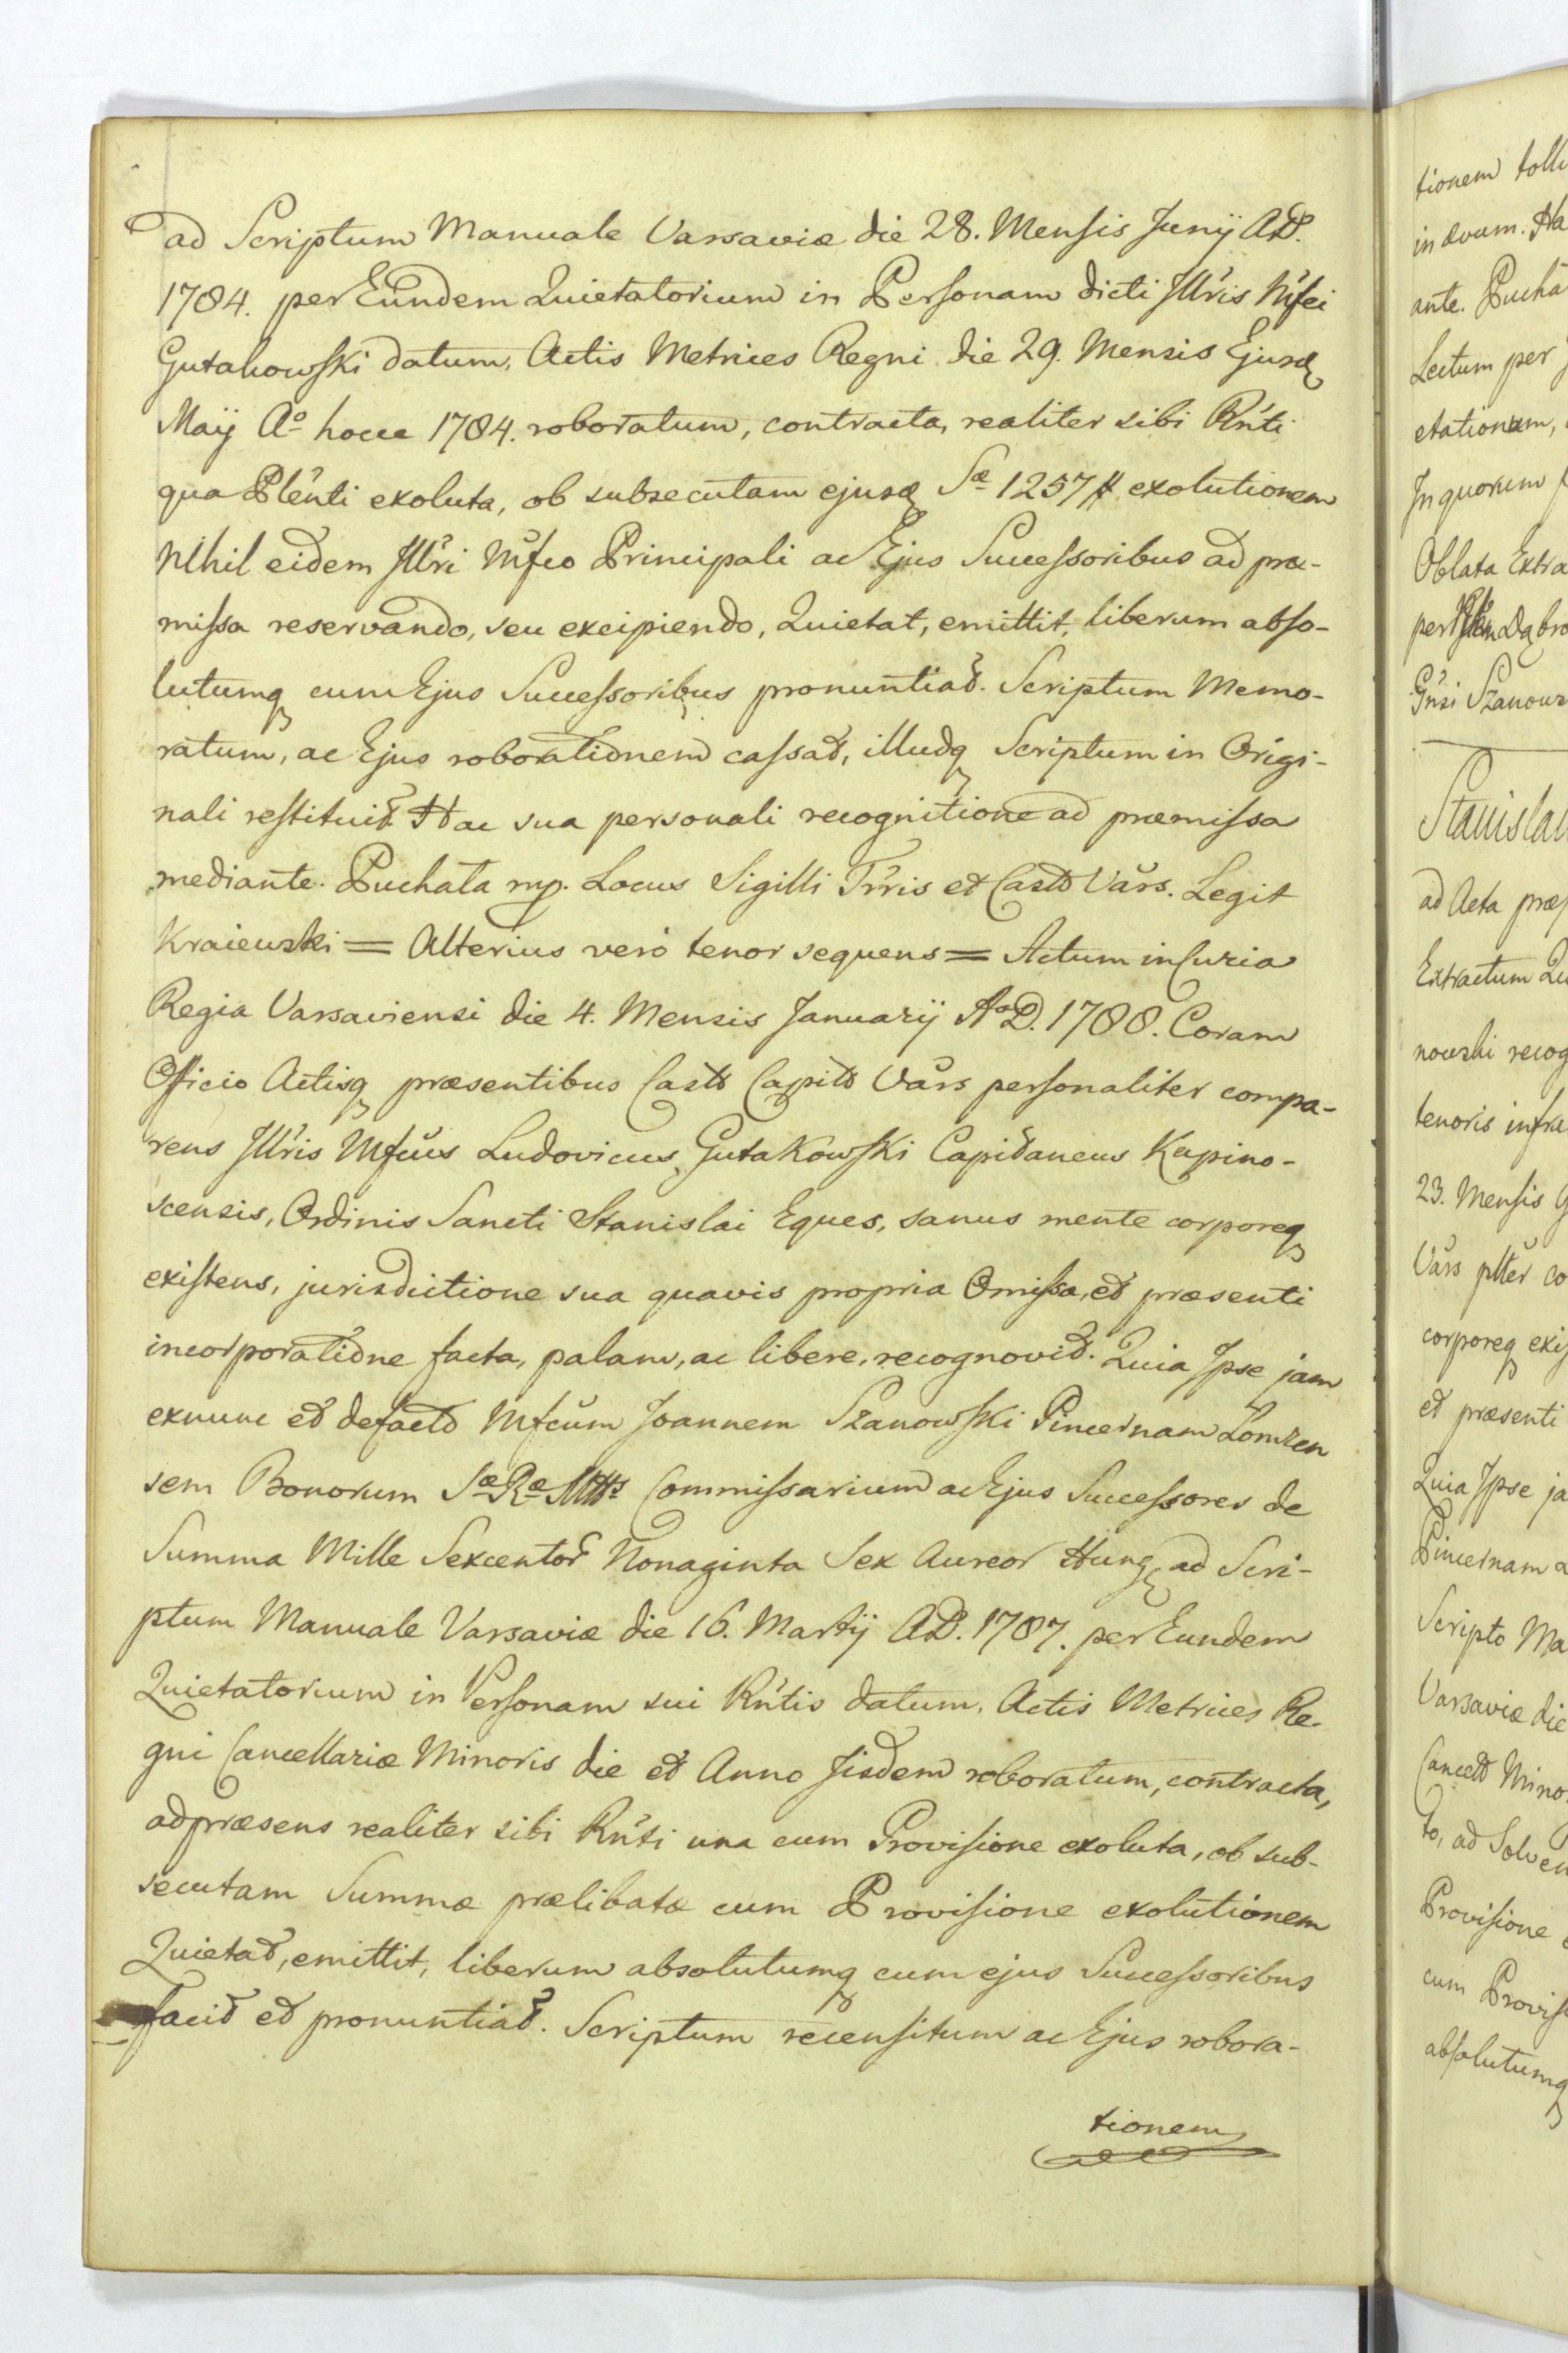 ad Scriptum Manuale Varsaviæ die 28. Mensis Junij AD.
1784. per Eundem Quietatorium in Personam dicti Jllris Mfci
Gutakowski datum, Actis Metrices Regni die 29. Mensis Ejusq
Maij Ao hocce 1784. roboratum, contracta, realiter sibi Rnti
qua Plenti exoluta, ob subsecutam ejusq Sæ 1257 # exolutionem
Nihil eidem Jllri Mfco Principali ac Ejus Successoribus ad præ-
missa reservando, seu excipiendo, Quietat, emittit, liberum abso-
lutumq cum Ejus Successoribus pronuntiat. Scriptum Memo-
ratum, ac Ejus roborationem cassat, illudq Scriptum in Origi-
nali restituit. Hac sua personali recognitione ad præmissa
mediante. Puchata mp. Locus Sigilli Trris et Castr Vars. Legit
Kraiewski = Alterius verò tenor sequens = Actum in Curia
Regia Varsaviensi die 4. Mensis Januarij AoD. 1788. Coram
Officio Actisq præsentibus Castr Capit Vars personaliter compa-
rens Jllris Mfcus Ludovicus Gutakowski Capitaneus Kapino-
scensis, Ordinis Sancti Stanislai Eques, sanus mente corporeq
existens, jurisdictione sua quavis propria Omissa, et præsenti
incorporatione facta, palam, ac libere, recognovit. Quia Jpse jam
exnunc et defacto Mfcum Joannem Szanowski Pincernam Łomzen
sem Bonorum Sæ Ræ Mttis Commissarium ac Ejus Successores de
Summa Mille Sexcentor Nonaginta Sex Aureor Hung ad Scri-
ptum Manuale Varsaviæ die 16. Martij AD. 1787. per Eundem
Quietatorium in Personam sui Rntis datum, Actis Metrices Re-
gni Cancellariæ Minoris die et Anno Jisdem roboratum, contracta,
adpræsens realiter sibi Rnti una cum Provisione exoluta, ob sub-
secutam Summæ prælibatæ cum Provisione exolutionem
Quietat, emittit, liberum absolutumq cum ejus Successoribus
facit et pronuntiat. Scriptum recensitum ac Ejus robora-
tionem
tionem
in ævum.
ante.
Lectum per
etationem,
Jn quorum
Oblata Extra
per
Szanows
Stanislau
ad Acta præs
Extractum
nowski recog
tenoris infra
23. Mensis
Vars plter co
corporeq exis
et præsenti
Quia Jpse ja
Pincernam
Scripto Ma
Varsaviæ die
Cancell Mino
to, ad Solven
Provisione
cum Provis
absolutumq